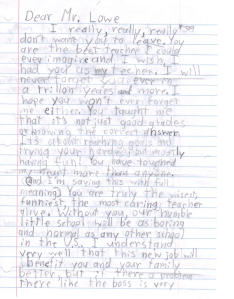 Dear Mr. Lowe
I really, really, really
don't want you to leave. You
are the best teacher I could
ever imagine and I wish, I
had you as my teacher. I will
never forget you ever in
a trillon years and more. I
hope you won't ever forget
me either. You taught me
that it's not just good grades
or knowing the correct answer.
It's about reaching goals and
trying your hardest but mostly
having fun! You have touched
my heart more than anyone.
(and I'm saying this with full
meaning) You are truly the wisest,
funniest, the most caring teacher
alive. Without you, our humble
little school will be as boring
and normal as any other school
in the U.S. I understand
very well that this new job will
benefit you and your family
better, but if there a problem
there like the boss is very